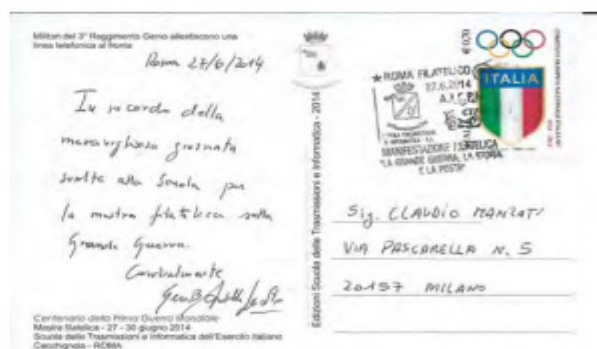 Militari del 3° Raggimento Genio allestiscono una
linea telefonica al fronte
Roma 27/6/2014
In ricordo della
meravigliosa giornata
svolta alla Scuola per
la mostra filatelica sulla
Grande Guerra.
Cordialmente
Centenario della Prima Guerra Mondiale
Mostra filatelica - 27 - 30 giugno 2014
Scuola delle Trasmissioni e Informatica dell'Esercito Italiano
Cecchignola - ROMA
Edizioni Scuola delle Trasmissioni e Informatica - 2014
€ 0,70
ITALIA
ROMA FILATELICO
27.6.2014
MANIFESTAZIONE FILATELICA
"LA GRANDE GUERRA, LA STORIA
E LA POSTA"
Sig. CLAUDIO MANZATI
VIA PASCARELLA N. 5
20157 MILANO